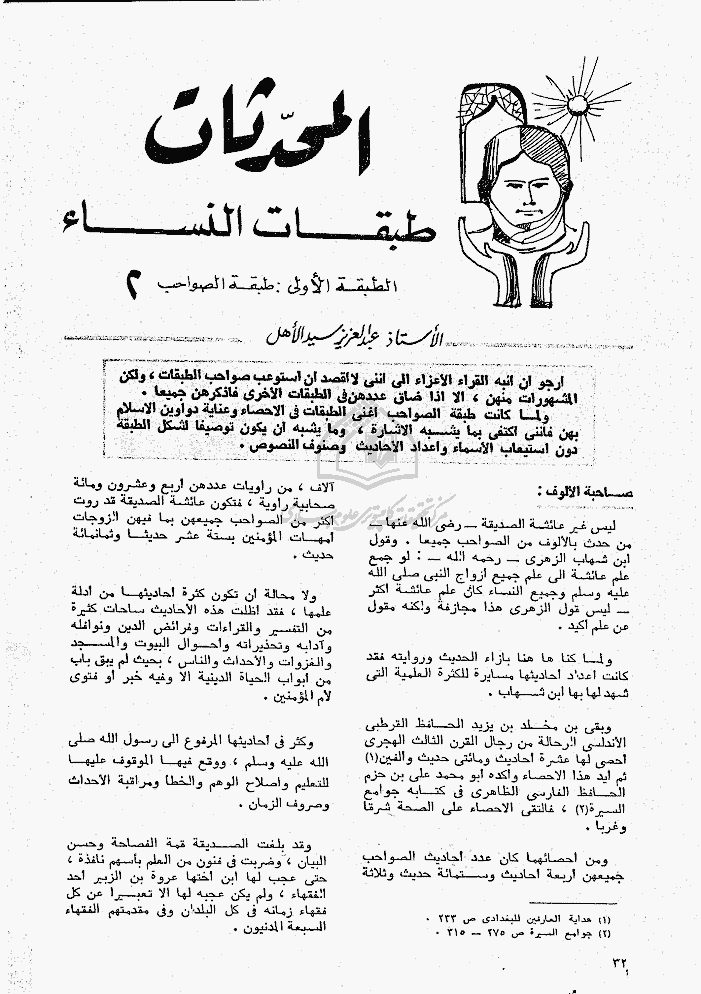 المحدّثات
طبقات النساء
الطبقة الأولى : طبقة الصواحب ٢
الأستاذ عبدالعزيز سيد الأهل
ارجو ان انبه القراء الأعزاء الى اننى لا اقصد ان استوعب صواحب الطبقات ، ولكن
المشهورات منهن ، الا اذا ضاق عددهن فى الطبقات الأخرى فاذكرهن جميعا .
ولما كانت طبقة الصواحب اغنى الطبقات فى الاحصاء وعناية دواوين الاسلام
بهن فاننى اكتفى بما يشبه الاشارة ، وما يشبه ان يكون توصيفا لشكل الطبقة
دون استيعاب الأسماء واعداد الأحاديث وصنوف النصوص .
صاحبة الألوف :
ليس غير عائشة الصديقة ــ رضى الله عنها ــ
من حدث بالألوف من الصواحب جميعا . وقول
ابن شهاب الزهرى ــ رحمه الله ــ : لو جمع
علم عائشة الى علم جميع ازواج النبى صلى الله
عليه وسلم وجميع النساء كان علم عائشة اكثر
ــ ليس قول الزهرى هذا مجازفة ولكنه مقول
عن علم اكيد .
ولما كنا ها هنا بازاء الحديث وروايته فقد
كانت اعداد احاديثها مسايرة للكثرة العلمية التى
شهد لها بها ابن شهاب .
وبقى بن مخلد بن يزيد الحافظ القرطبى
الأندلسى الرحالة من رجال القرن الثالث الهجرى
احصى لها عشرة احاديث ومائتى حديث والفين(١)
ثم ايد هذا الاحصاء واكده ابو محمد على بن حزم
الحافظ الفارسى الظاهرى فى كتابه جوامع
السيرة(٢) ، فالتقى الاحصاء على الصحة شرقا
وغربا .
ومن احصائهما كان عدد احاديث الصواحب
جميعهن اربعة احاديث وستمائة حديث وثلاثة
(١) هداية العارفين للبغدادى ص ٢٣٣ .
(٢) جوامع السيرة ص ٢٧٥ ــ ٣١٥ .
آلاف ، من راويات عددهن اربع وعشرون ومائة
صحابية راوية ، فتكون عائشة الصديقة قد روت
اكثر من الصواحب جميعهن بما فيهن الزوجات
امهات المؤمنين بستة عشر حديثا وثمانمائة
حديث .
ولا محالة ان تكون كثرة احاديثها من ادلة
علمها ، فقد اظلت هذه الأحاديث ساحات كثيرة
من التفسير والقراءات وفرائض الدين ونوافله
وآدابه وتحذيراته واحوال البيوت والمسجد
والغزوات والأحداث والناس ، بحيث لم يبق باب
من ابواب الحياة الدينية الا وفيه خبر او فتوى
لأم المؤمنين .
وكثر فى احاديثها المرفوع الى رسول الله صلى
الله عليه وسلم ، ووقع فيها الموقوف عليها
للتعليم واصلاح الوهم والخطا ومراقبة الأحداث
وصروف الزمان .
وقد بلغت الصديقة قمة الفصاحة وحسن
البيان ، وضربت فى فنون من العلم بأسهم نافذة ،
حتى عجب لها ابن اختها عروة بن الزبير احد
الفقهاء ، ولم يكن عجبه لها الا تعبيرا عن كل
فقهاء زمانه فى كل البلدان وفى مقدمتهم الفقهاء
السبعة المدنيون .
٣٢